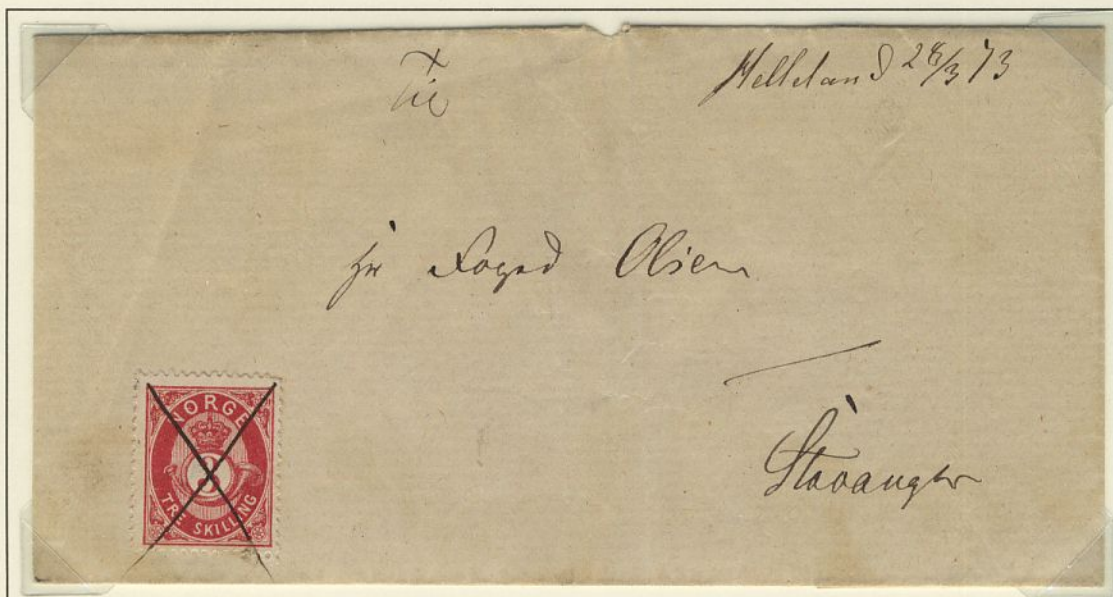 Til
Helleland 28/3 73
Hr Foged Olsen
Stavanger
NORGE
3
TRE SKILLING